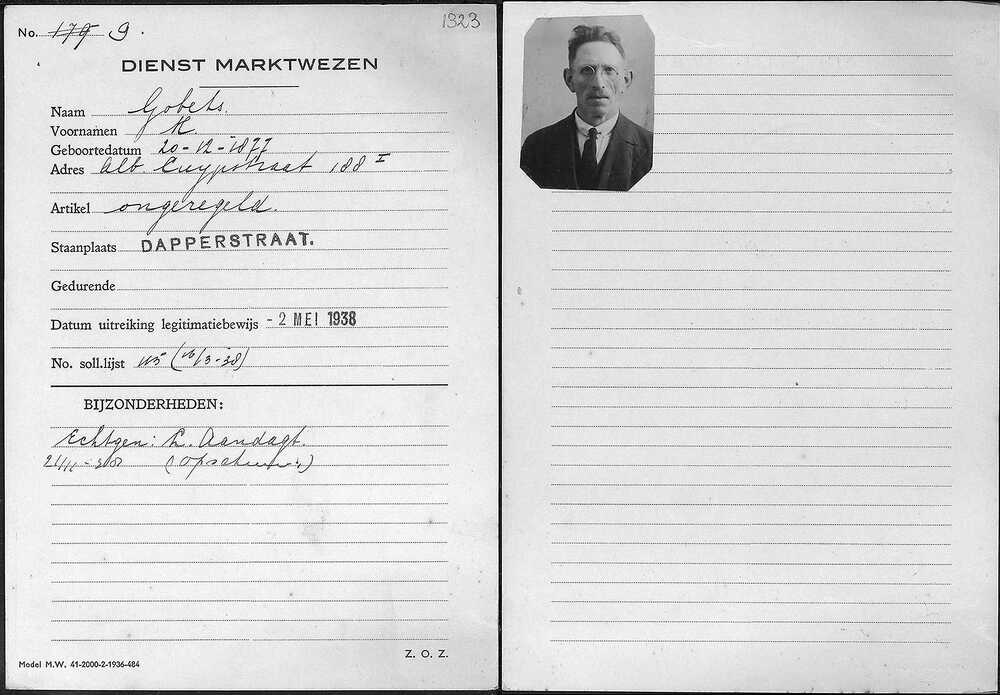 1323
No. 179 9.
DIENST MARKTWEZEN
Naam Gobets.
Voornamen M.
Geboortedatum 20-12-1877
Adres Alb. Cuypstraat 188 I
Artikel ongeregeld.
Staanplaats DAPPERSTRAAT.
Gedurende
Datum uitreiking legitimatiebewijs - 2 MEI 1938
No. soll.lijst
BIJZONDERHEDEN:
Echtgen: Aandagt.
Z. O. Z.
Model M.W. 41-2000-2-1936-484